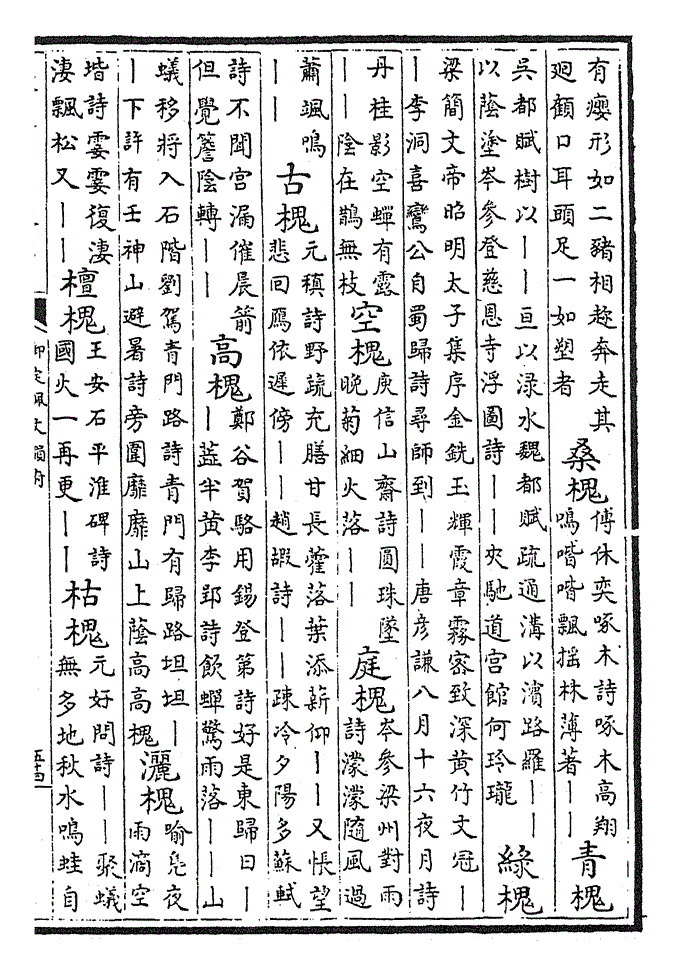 有癭形如二豬相趂奔走其
廻顧口耳頭足一如塑者
桑槐
傅休奕啄木詩啄木高翔
鳴喈喈飄揺林薄著丨丨
青槐
吳都賦樹以丨丨亘以渌水魏都賦疏通溝以濱路羅丨丨
以蔭塗岑參登慈恩寺浮圖詩丨丨夾馳道宫館何玲瓏
緑槐
梁簡文帝昭明太子集序金銑玉輝霞章霧密致深黄竹文冠丨
丨李洞喜鸞公自蜀歸詩尋師到丨丨唐彦謙八月十六夜月詩
丹桂影空蟬有露
丨丨陰在鵲無枝
空槐
庾信山齋詩圓珠墜
晚菊細火落丨丨
庭槐
岑參梁州對雨
詩濛濛隨風過
蕭颯鳴
丨丨
古槐
元稹詩野疏充膳甘長藿落葉添薪仰丨丨又悵望
悲回鴈依遲傍丨丨趙嘏詩丨丨疎冷夕陽多蘇軾
詩不聞宫漏催晨箭
但覺簷陰轉丨丨
高槐
鄭谷賀駱用錫登第詩好是東歸日丨
丨蕋半黄李郢詩飲蟬驚雨落丨丨山
蟻移將入石階劉駕青門路詩青門有歸路坦坦丨
丨下許有壬神山避暑詩旁圍靡靡山上蔭高高槐
灑槐
喻鳧夜
雨滴空
堦詩霎霎復淒
淒飄松又丨丨
檀槐
王安石平淮碑詩
國火一再更丨丨
枯槐
元好問詩丨丨聚蟻
無多地秋水鳴蛙自
御定佩文韻府